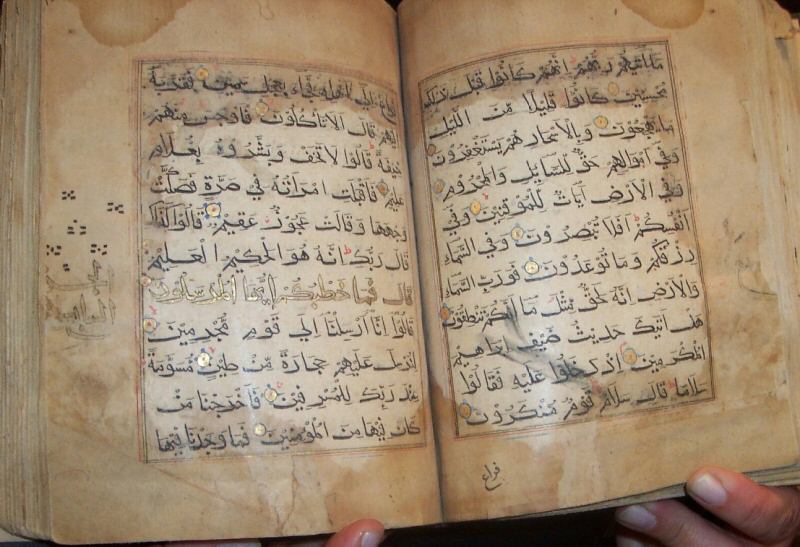 ما آتيهم ربهم انهم كانوا قبل ذلك
محسنين كانوا قليلا من الليل
ما يهجعون وبالاسحار هم يستغفرون
وفي اموالهم حق للسايل والمحروم
وفي الارض آيات للموقنين وفي
انفسكم افلا تبصرون وفي السماء
رزقكم وما توعدون فورب السماء
والارض انه لحق مثل ما انكم تنطقون
هل اتيك حديث ضيف ابراهيم
المكرمين اذ دخلوا عليه فقالوا
سلاما قال سلام قوم منكرون
فراغ
فراغ الى اهله فجاء بعجل سمين فقربه
اليهم قال الا تاكلون فاوجس منهم
خيفة قالوا لا تخف وبشروه بغلام
عليم فاقبلت امراته في صرة فصكت
وجهها وقالت عجوز عقيم قالوا كذلك
قال ربك انه هو الحكيم العليم
قال فما خطبكم ايها المرسلون
قالوا انا ارسلنا الى قوم مجرمين
لنرسل عليهم حجارة من طين مسومة
عند ربك للمسرفين فاخرجنا من
كان فيها من المؤمنين فما وجدنا فيها